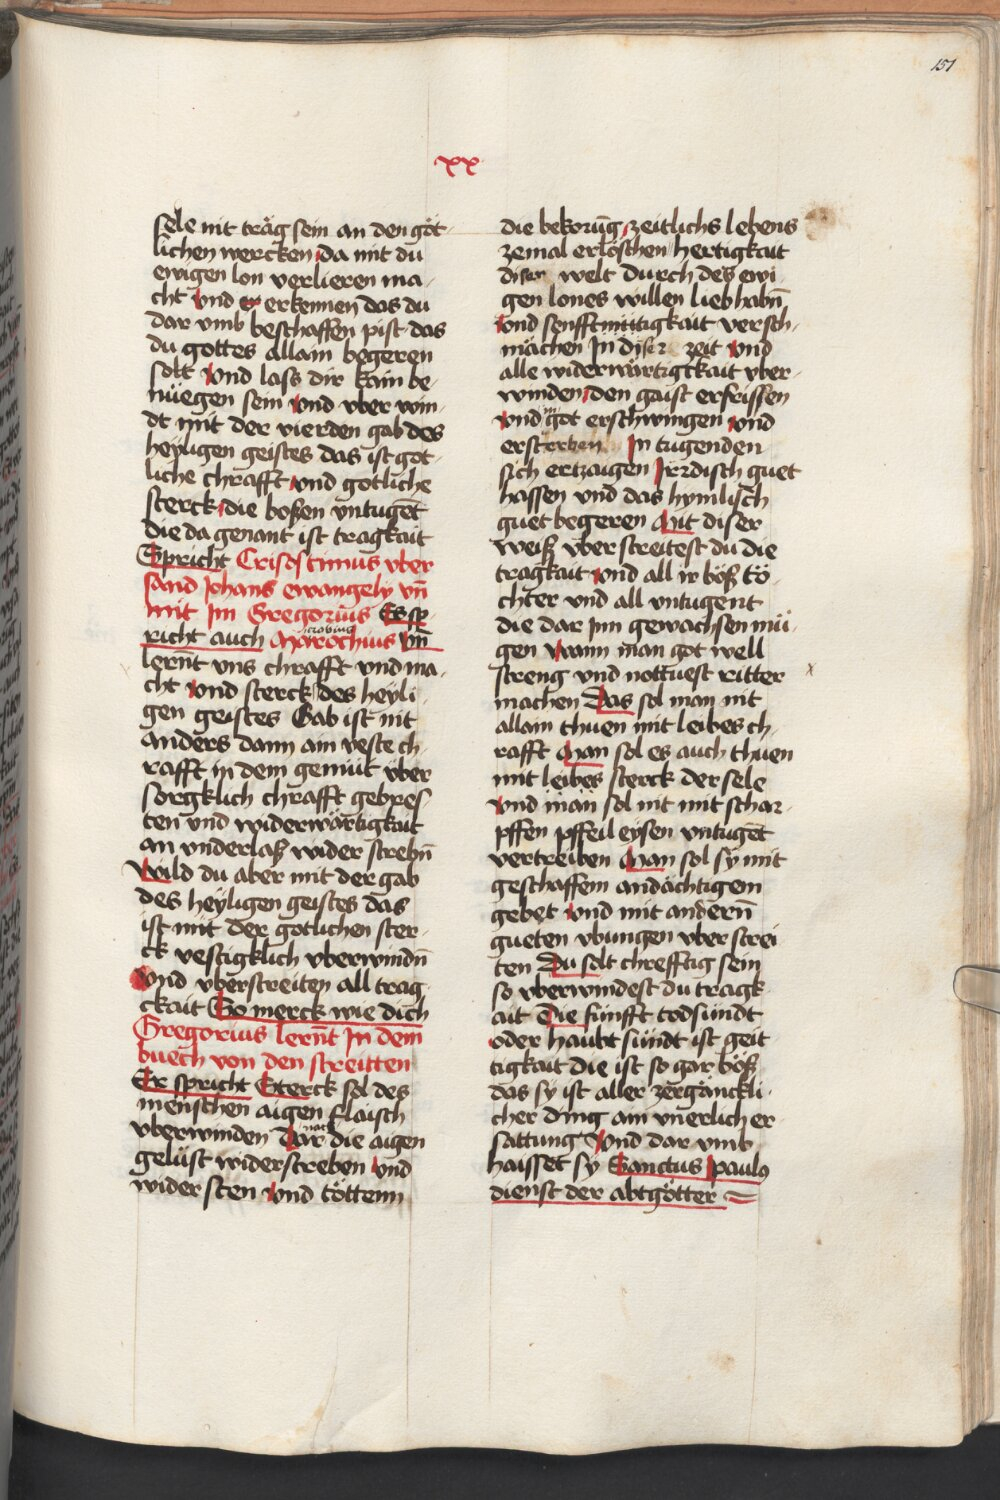 151
xx
sele nit träg sein an den göt
lichen wercken da mit du
ewigen lon verlieren ma
cht und erkennen das du
dar vmb beschaffen pist das
du gottes allain begeren
solt Und lass dir kain be
nüegen sein und vber win
dt mit der vierden gab des
heyligen geistes das ist got
liche chrafft und gotliche
sterck die boßen vntuget̄
die da genant ist tragkait
Spricht Crisostimus vber
sand Johans ewangely vn̄
mit Im Gregorius Es sp
richt auch Macrobius vn̄
lernt̄ vns chrafft vnd ma
cht Und sterck des heyli
gen geistes Gab ist nit
anders dann ain veste ch
rafft in dem gemüt vber
sorgklich chrafft gebres
ten vnd widerwärtigkait
an vnderlaß wider strebn̄
Wild du aber mit der gab
des heyligen geistes das
ist mit der gotlichen ster
ck vestigklich vberwindn̄
Und vberstreiten all trag
ckait So merck wie dich
Gregorius lernt̄ In dem
buech von den streitten
Er spricht Sterck sol des
menschen aigen flaisch
vberwinden Dar nach die aigen
gelüst widerstreben Und
widersten Und tötten
die bekorūg zeitlichs lebens
zemal erlöschen hertigkait
diser welt durch des ewi
gen lones willen lieb habn̄
Und senfftmütigkait versch
mächen In diser zeit Und
alle widerwärtigkait vber
winden den gaist erfrissen
Und in got erschwingen Und
ersterben In tugenden
sich ertzaigen Irrdisch guet
hassen vnd das hymlisch
guet begeren Mit diser
weiß vberstreitest du die
tragkait Und all ir böß tö
chter vnd all vntugent
die dar Inn gewachsen mü
gen Wann man got well
streng vnd nottuest ritter
machen Das sol man nit
allain thuen mit leibes ch
rafft Man sol es auch thuen
mit leibes sterck der sele
Und man sol nit mit schar
pffen pffeil eysen vntuget̄
vertreiben Man sol sy mit
geschaffem andächtigem
gebet Und mit andern̄
gueten vbungen vberstrei
ten Du solt chrefftig sein
so vberwindest du tragk
ait Die fünfft todsündt
oder haubt sündt ist geit
tigkait die ist so gar böß
das sy ist aller zergänckli
cher ding ain vnerlich er
sattung Und dar vmb
haisset sy Sanctus paulus
dienst der abtgötter